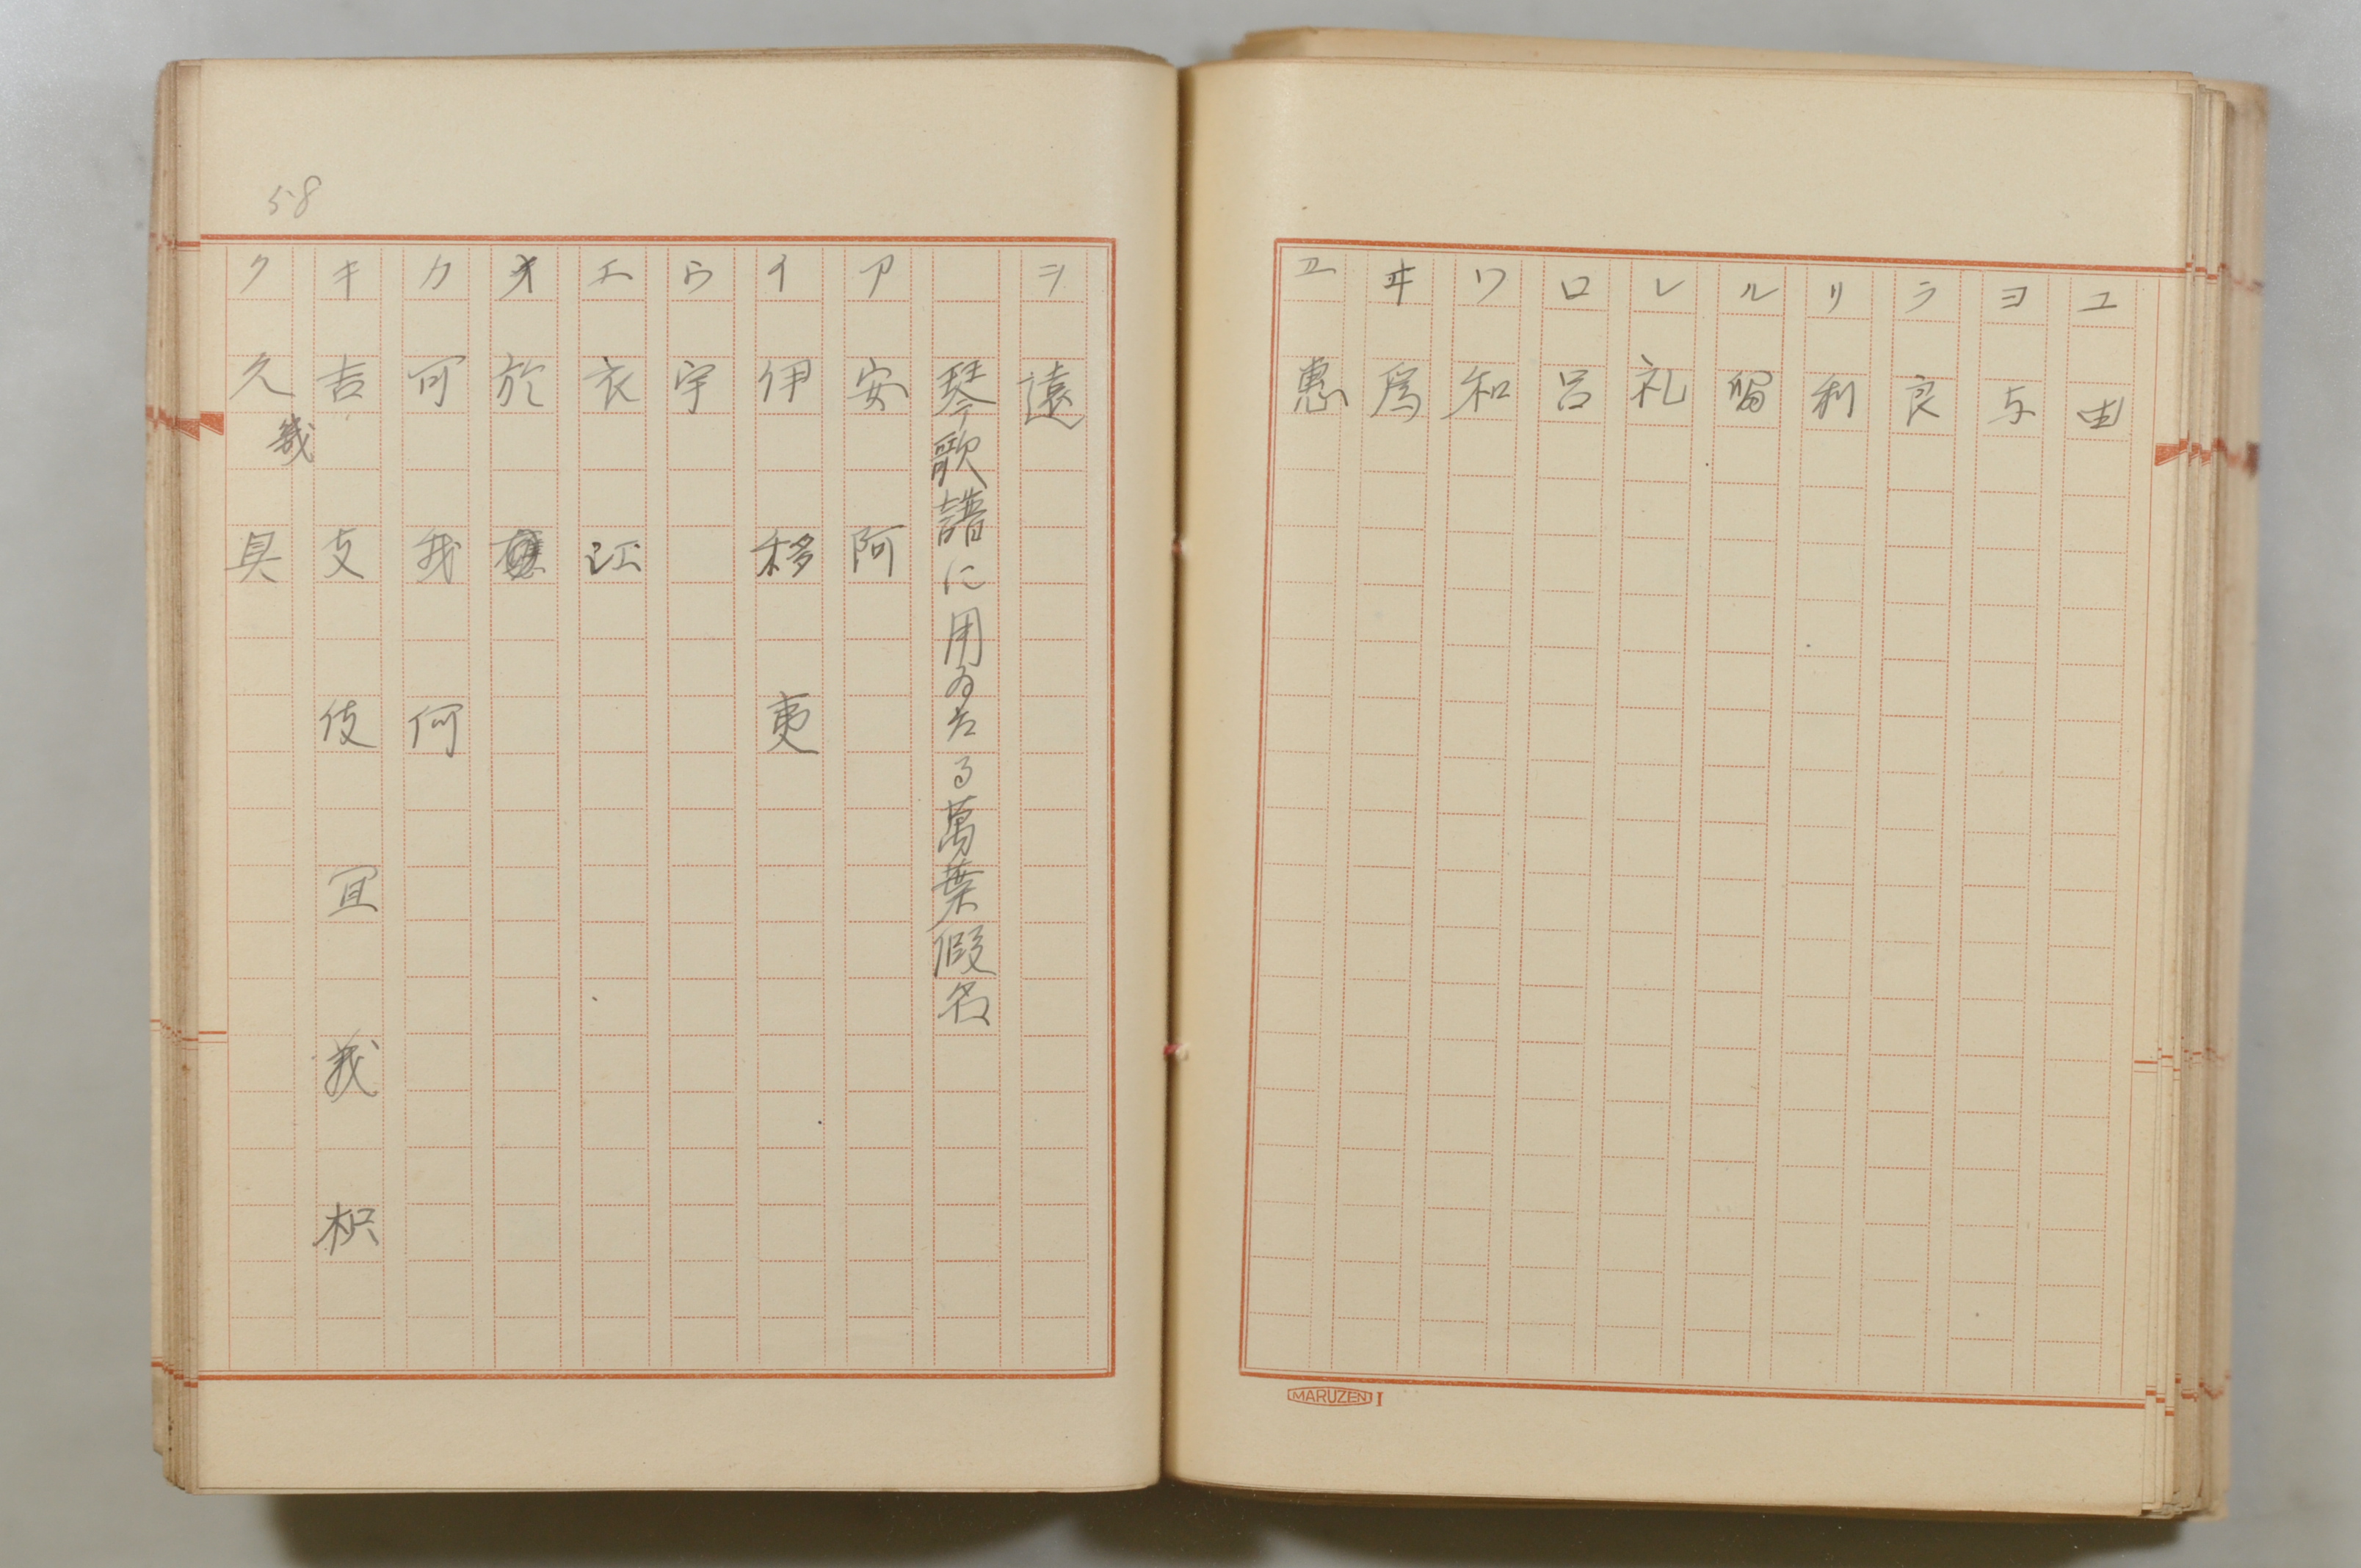 ユ 由
ヨ 与
ラ 良
リ 利
ル 留
レ 礼
ロ 呂
ワ 和
ヰ 為
ヱ 恵
MARUZEN I
58
ヲ 遠
琴歌譜に用ゐたる萬葉假名
ア 安 阿
イ 伊 移 夷
ウ 宇
エ 衣 江
オ 於
カ 可 我 何
キ 吉 支 伎 冝 我 枳
幾
ク 久 具